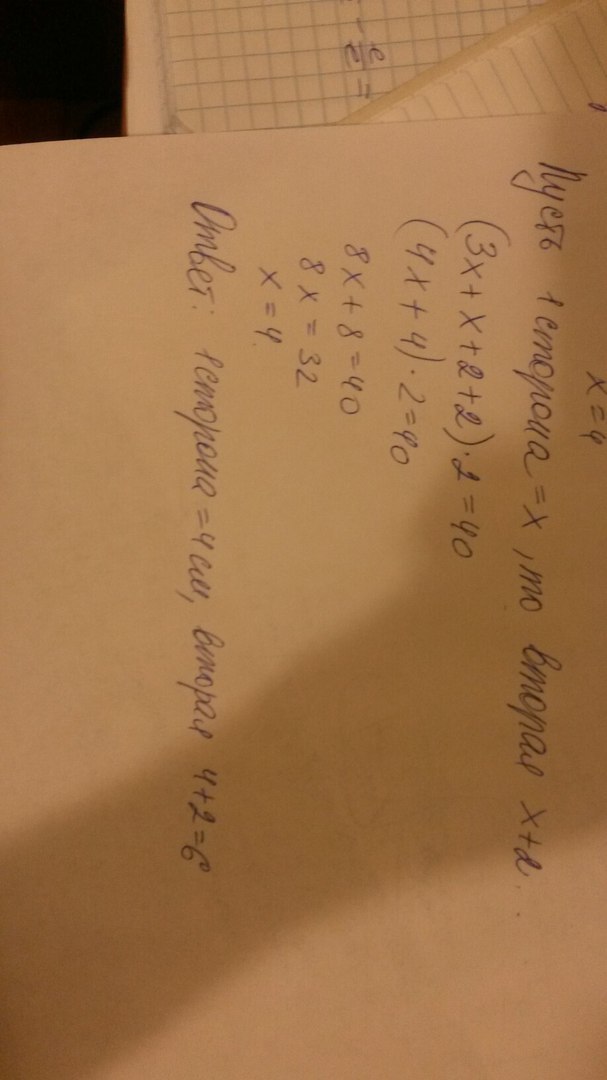 x = 4
Пусть 1 сторона = x, то вторая x+2.
(3x + x + 2 + 2) · 2 = 40
(4x + 4) · 2 = 40
8x + 8 = 40
8x = 32
x = 4.
Ответ: 1 сторона = 4 см, вторая 4+2=6